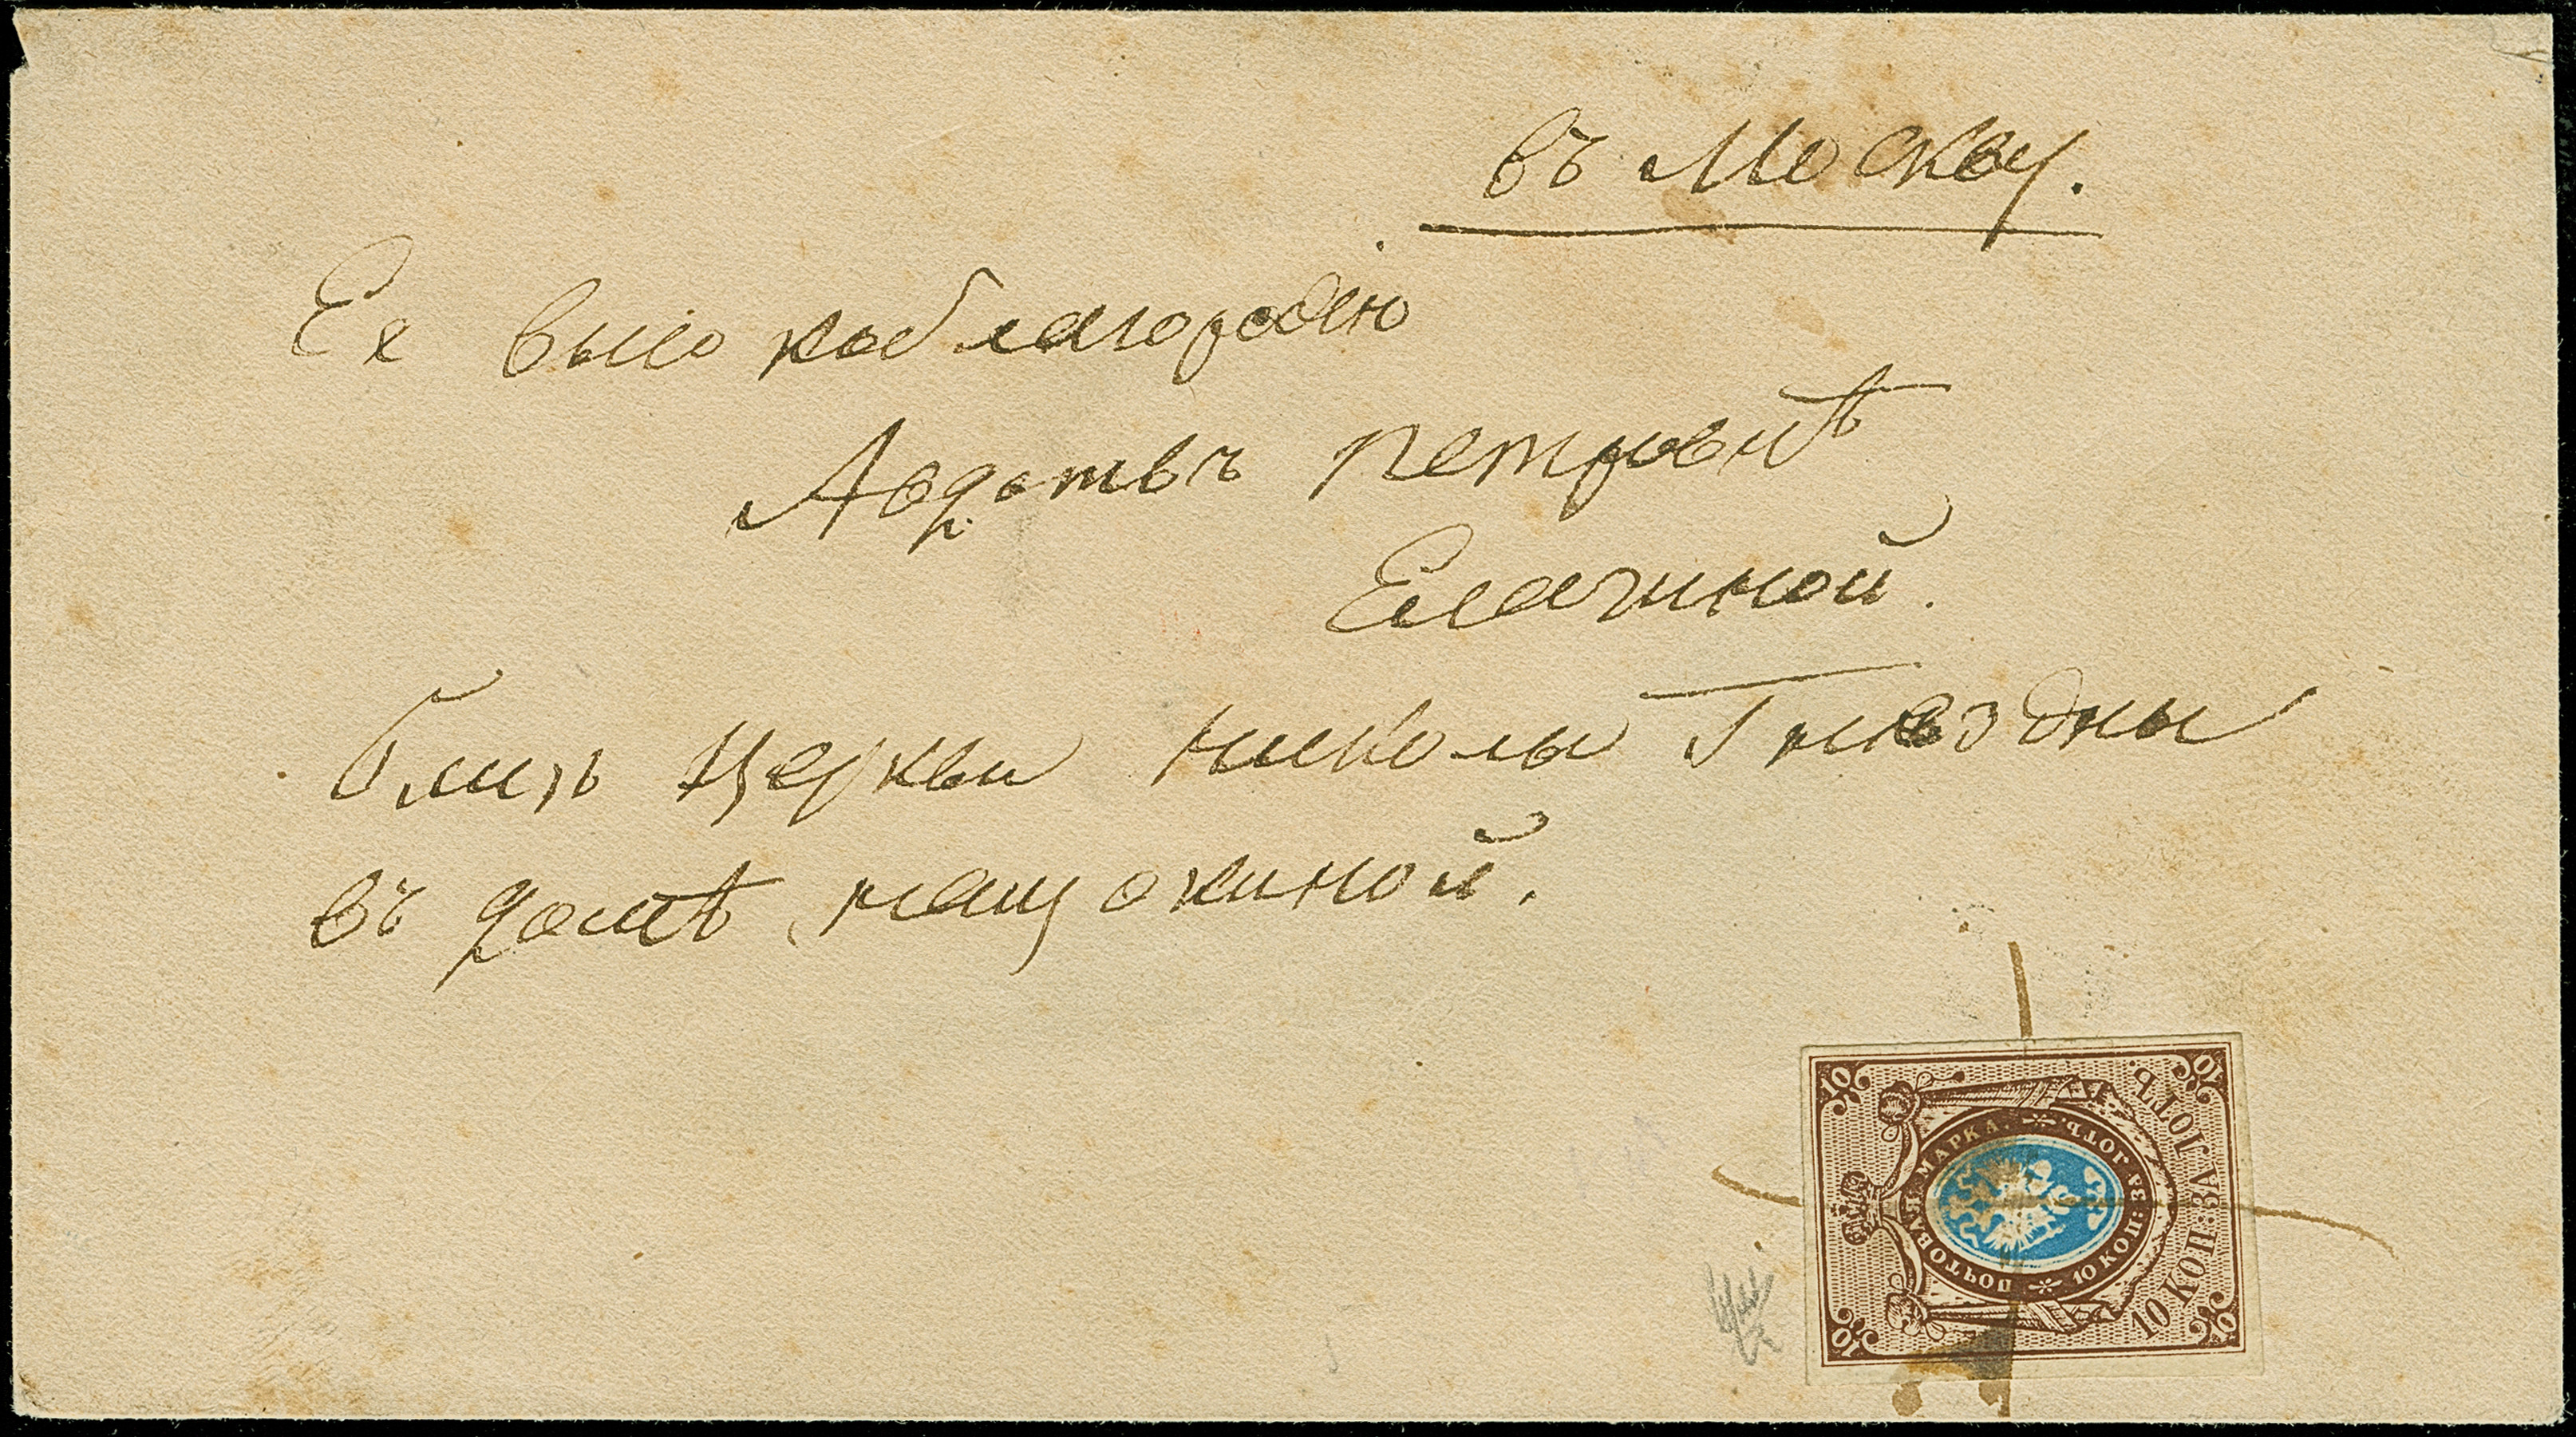 въ Москву.
Ея высокоблагородію
Авдотьѣ петровнѣ
Елагиной.
близь церкви николы Гнездны
въ домѣ нащокиной.
10 10
ПОЧТОВАЯ МАРКА. 10 КОП: ЗА ЛОТЪ.
10 КОП: ЗА ЛОТЪ
10 10